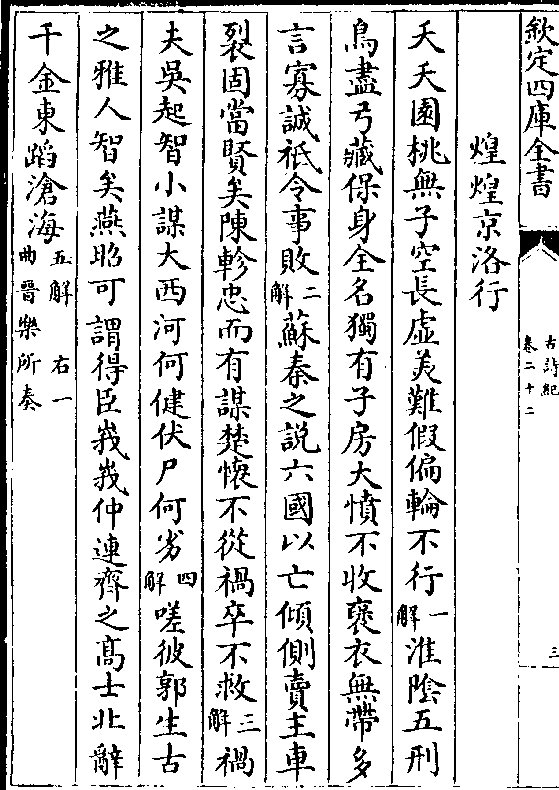 欽定四庫全書
古詩紀
卷二十二
三
煌煌京洛行
夭夭園桃無子空長虛美難假偏輪不行一解淮陰五刑
鳥盡弓藏保身全名獨有子房大憤不收褒衣無帶多
言寡誠祇令事敗二解蘇秦之說六國以亡傾側賣主車
裂固當賢矣陳軫忠而有謀楚懷不從禍卒不救三解禍
夫吳起智小謀大西河何健伏尸何劣四解嗟彼郭生古
之雅人智矣燕昭可謂得臣峩峩仲連齊之髙士北辭
千金東蹈滄海五解右一曲晉樂所奏